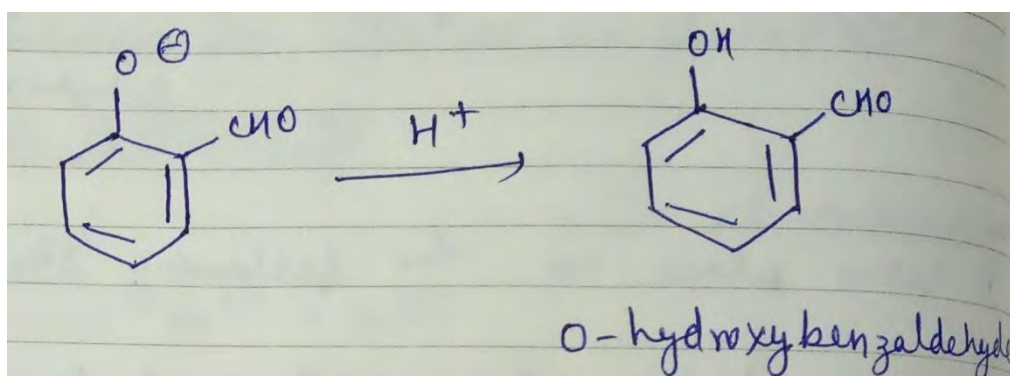 O ⊖
OH
CHO
H+
CHO
O-hydroxybenzaldehyde